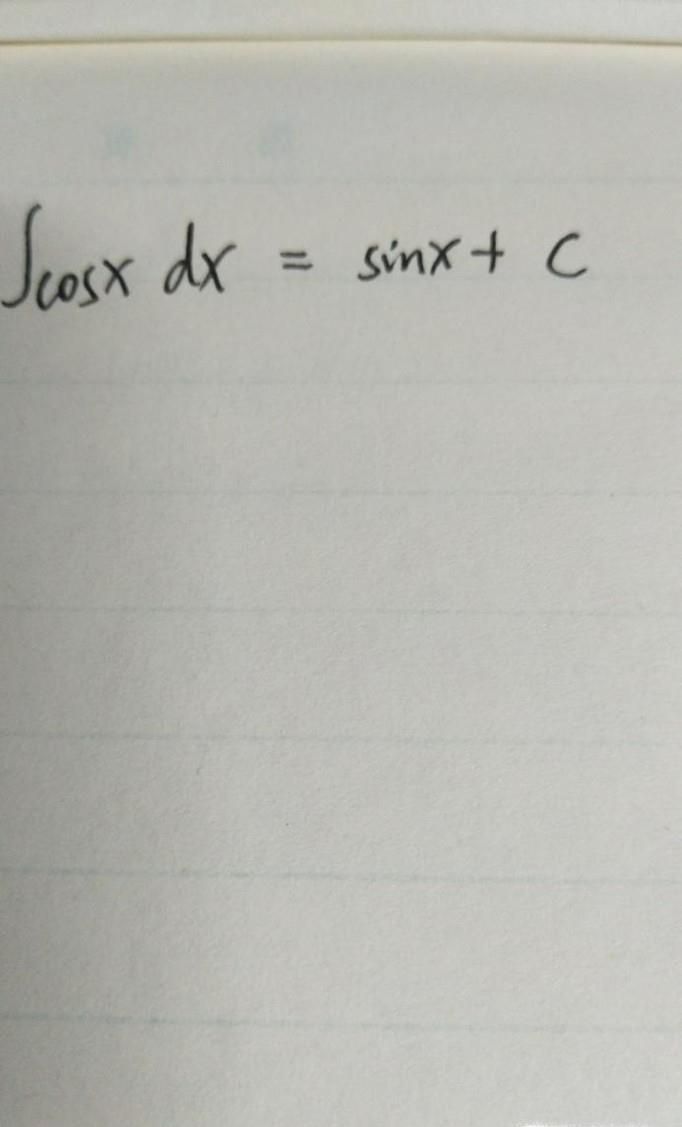 ∫cosx dx = sinx + C